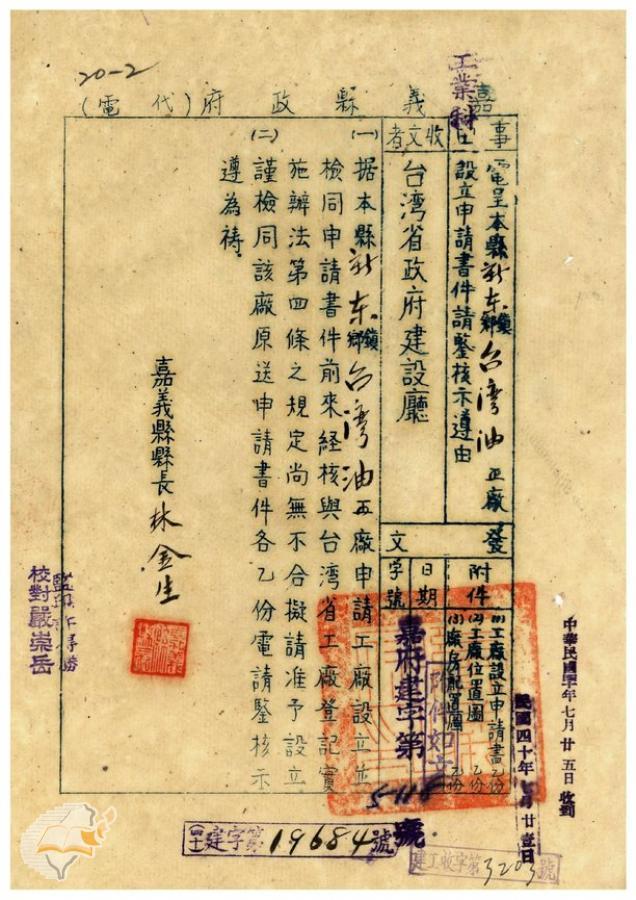 20-2
工業科
嘉義縣政府(代電)
事由
電呈本縣新东鎮鄉台湾油 厰
設立申請書件請鑒核示遵由
收文者
台湾省政府建設廳
發文
附件
(1)工廠設立申請書乙份
(2)工廠位置圖 乙份
(3)廠房配置圖 乙份
日期
字號
附件如文
民國四十年七月廿壹日
嘉府建字第
號
(一)据本縣新东鎮鄉台湾油 廠申請工廠設立並
檢同申請書件前來経核與台湾省工廠登記實
施辦法第四條之規定尚無不合擬請准予設立
(二)謹檢同該廠原送申請書件各乙份電請鑒核示
遵為禱.
嘉義縣縣長 林金生
校對嚴崇岳
七月廿五日收到
建字第19684號
建工收字第3203號